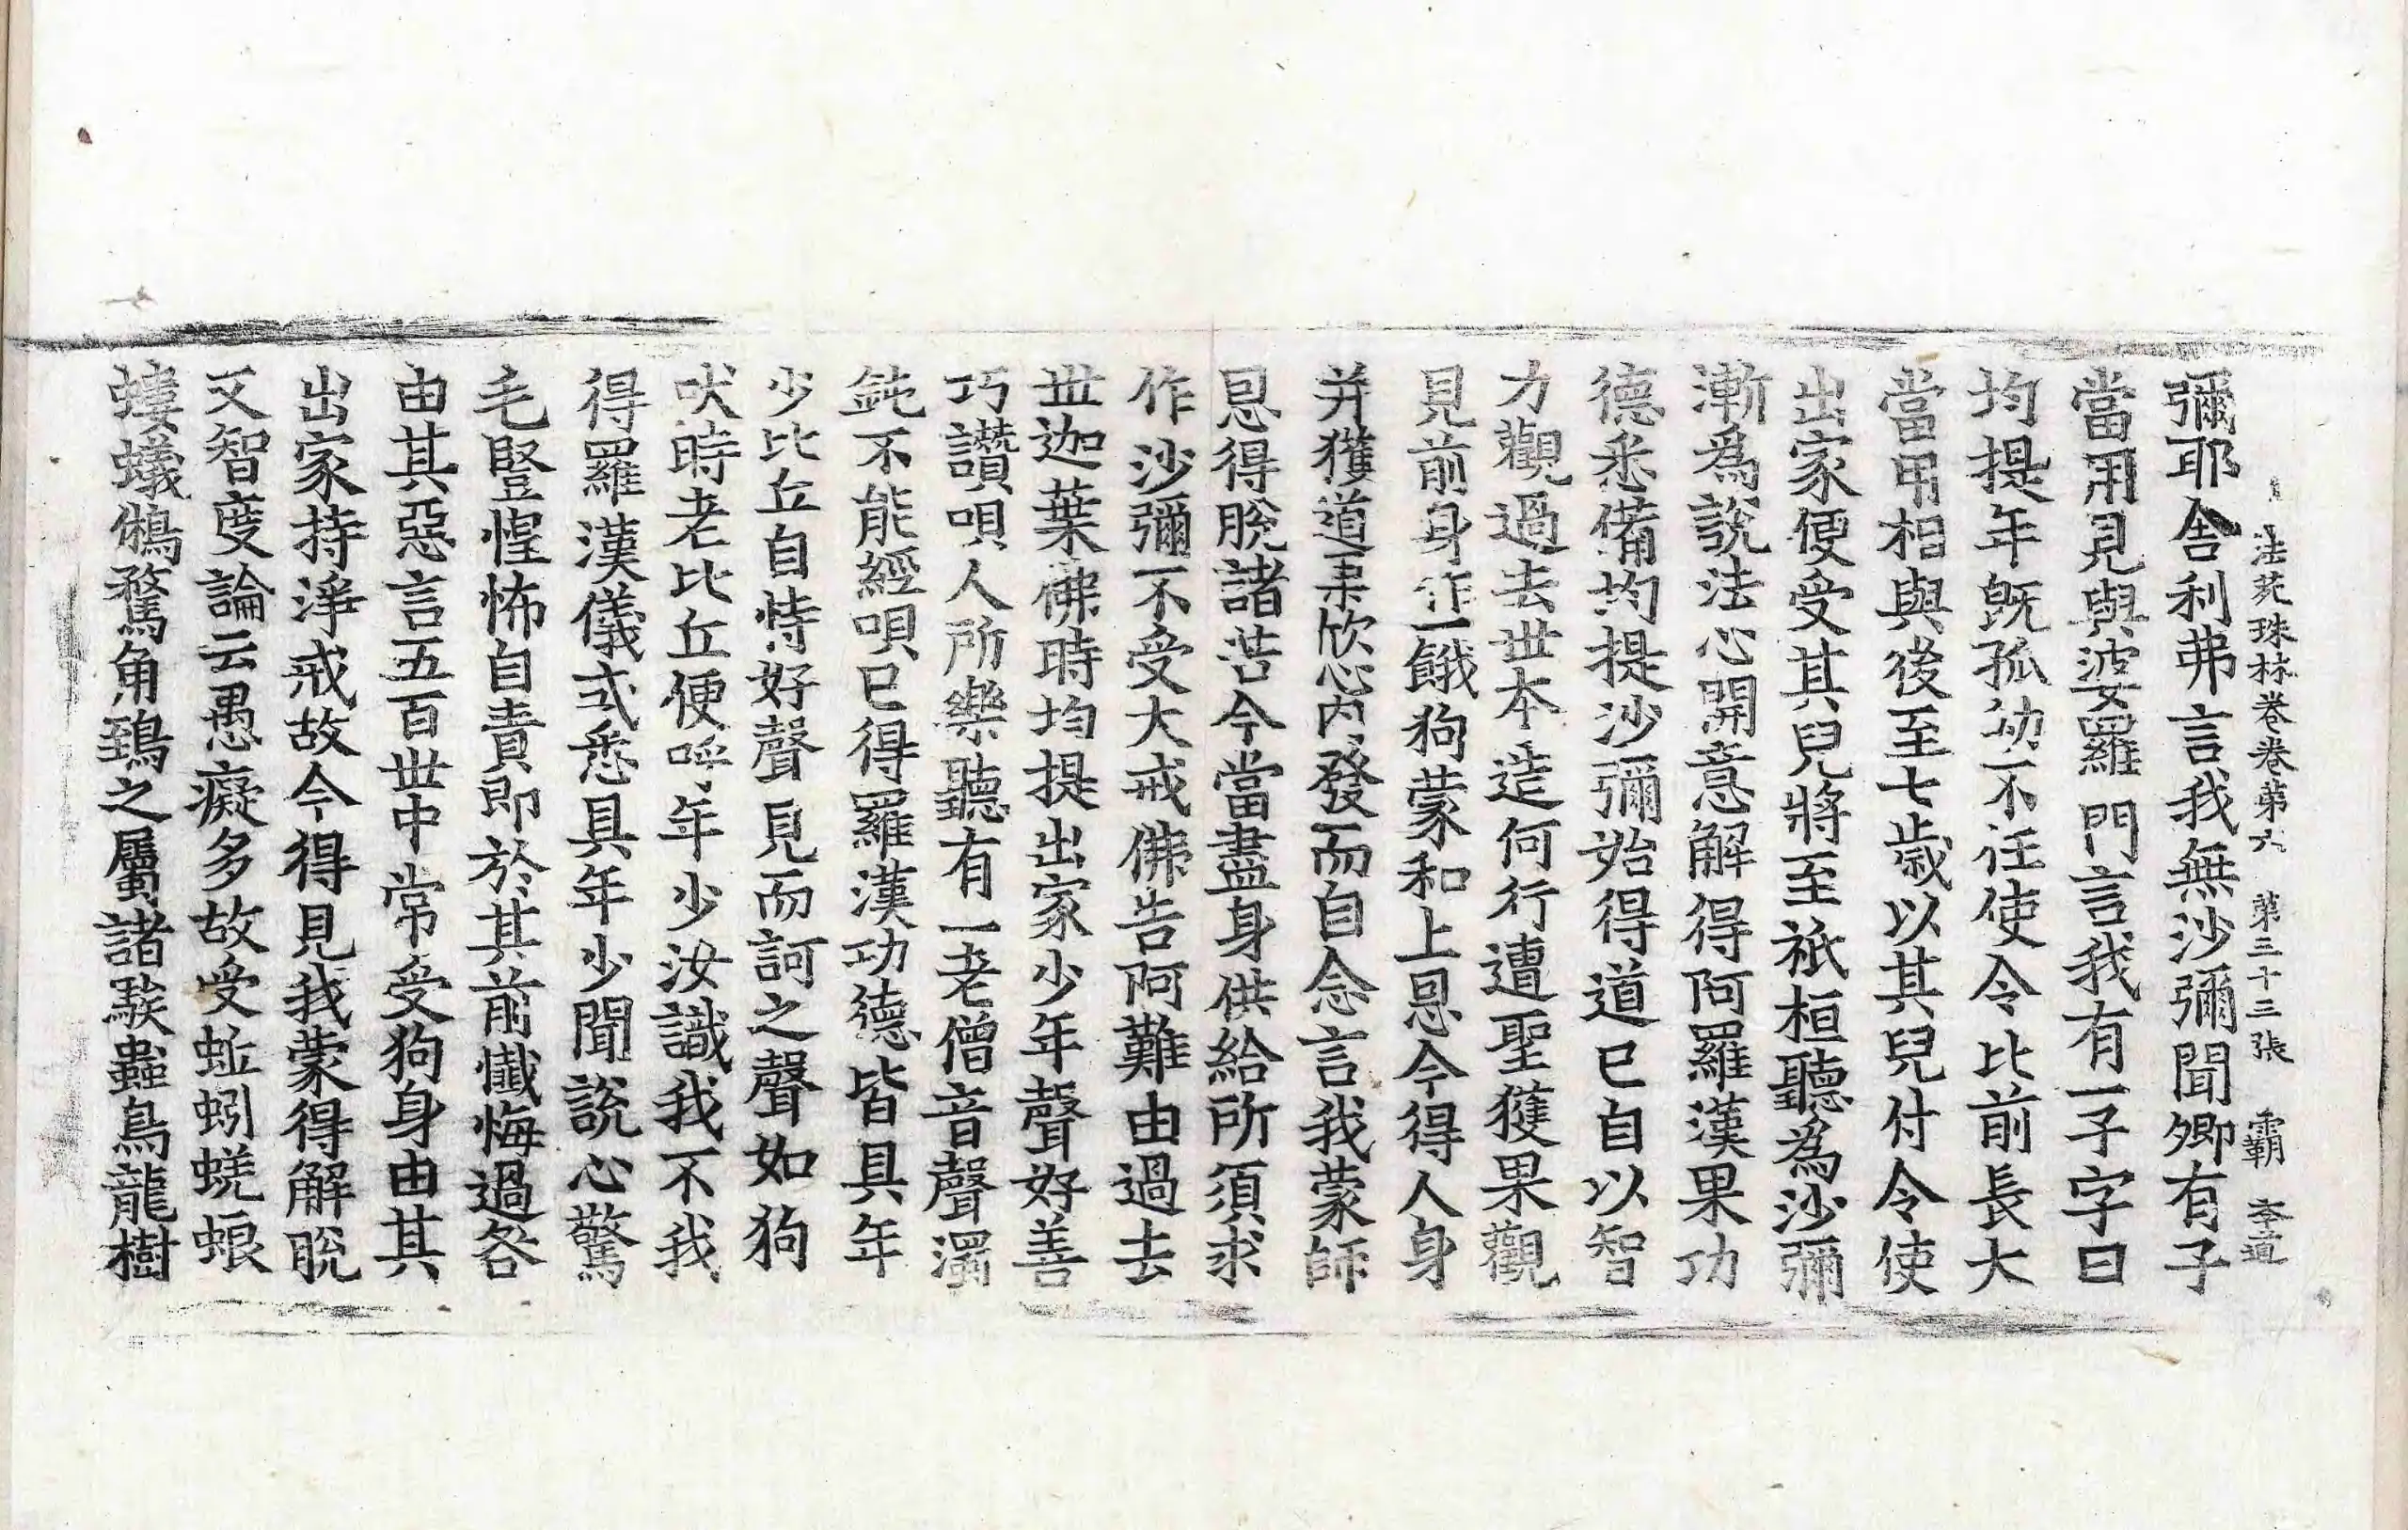 法苑珠林卷卷第六 第三十三張 霸 李道
彌耶舍利弗言我無沙彌聞卿有子
當用見與婆羅門言我有一子字曰
均提年旣孤幼不任使令比前長大
當用相與後至七歲以其兒付令使
出家便受其兒將至祇桓聽爲沙彌
漸爲說法心開意解得阿羅漢果功
德悉備均提沙彌始得道已自以智
力觀過去世本造何行遭聖獲果觀
見前身作一餓狗蒙和上恩今得人身
并獲道果欣心內發而自念言我蒙師
恩得脫諸苦今當盡身供給所須求
作沙彌不受大戒佛告阿難由過去
世迦葉佛時均提出家少年聲好善
巧讚唄人所樂聽有一老僧音聲濁
鈍不能經唄已得羅漢功德皆具年
少比丘自恃好聲見而訶之聲如狗
吠時老比丘便呼年少汝識我不我
得羅漢儀式悉具年少聞說心驚
毛竪惶怖自責即於其前懺悔過咎
由其惡言五百世中常受狗身由其
出家持淨戒故今得見我蒙得解脫
又智度論云愚癡多故受蚯蚓蜣蜋
螻蟻鵂鶖角鵄之屬諸騃蟲鳥龍樹